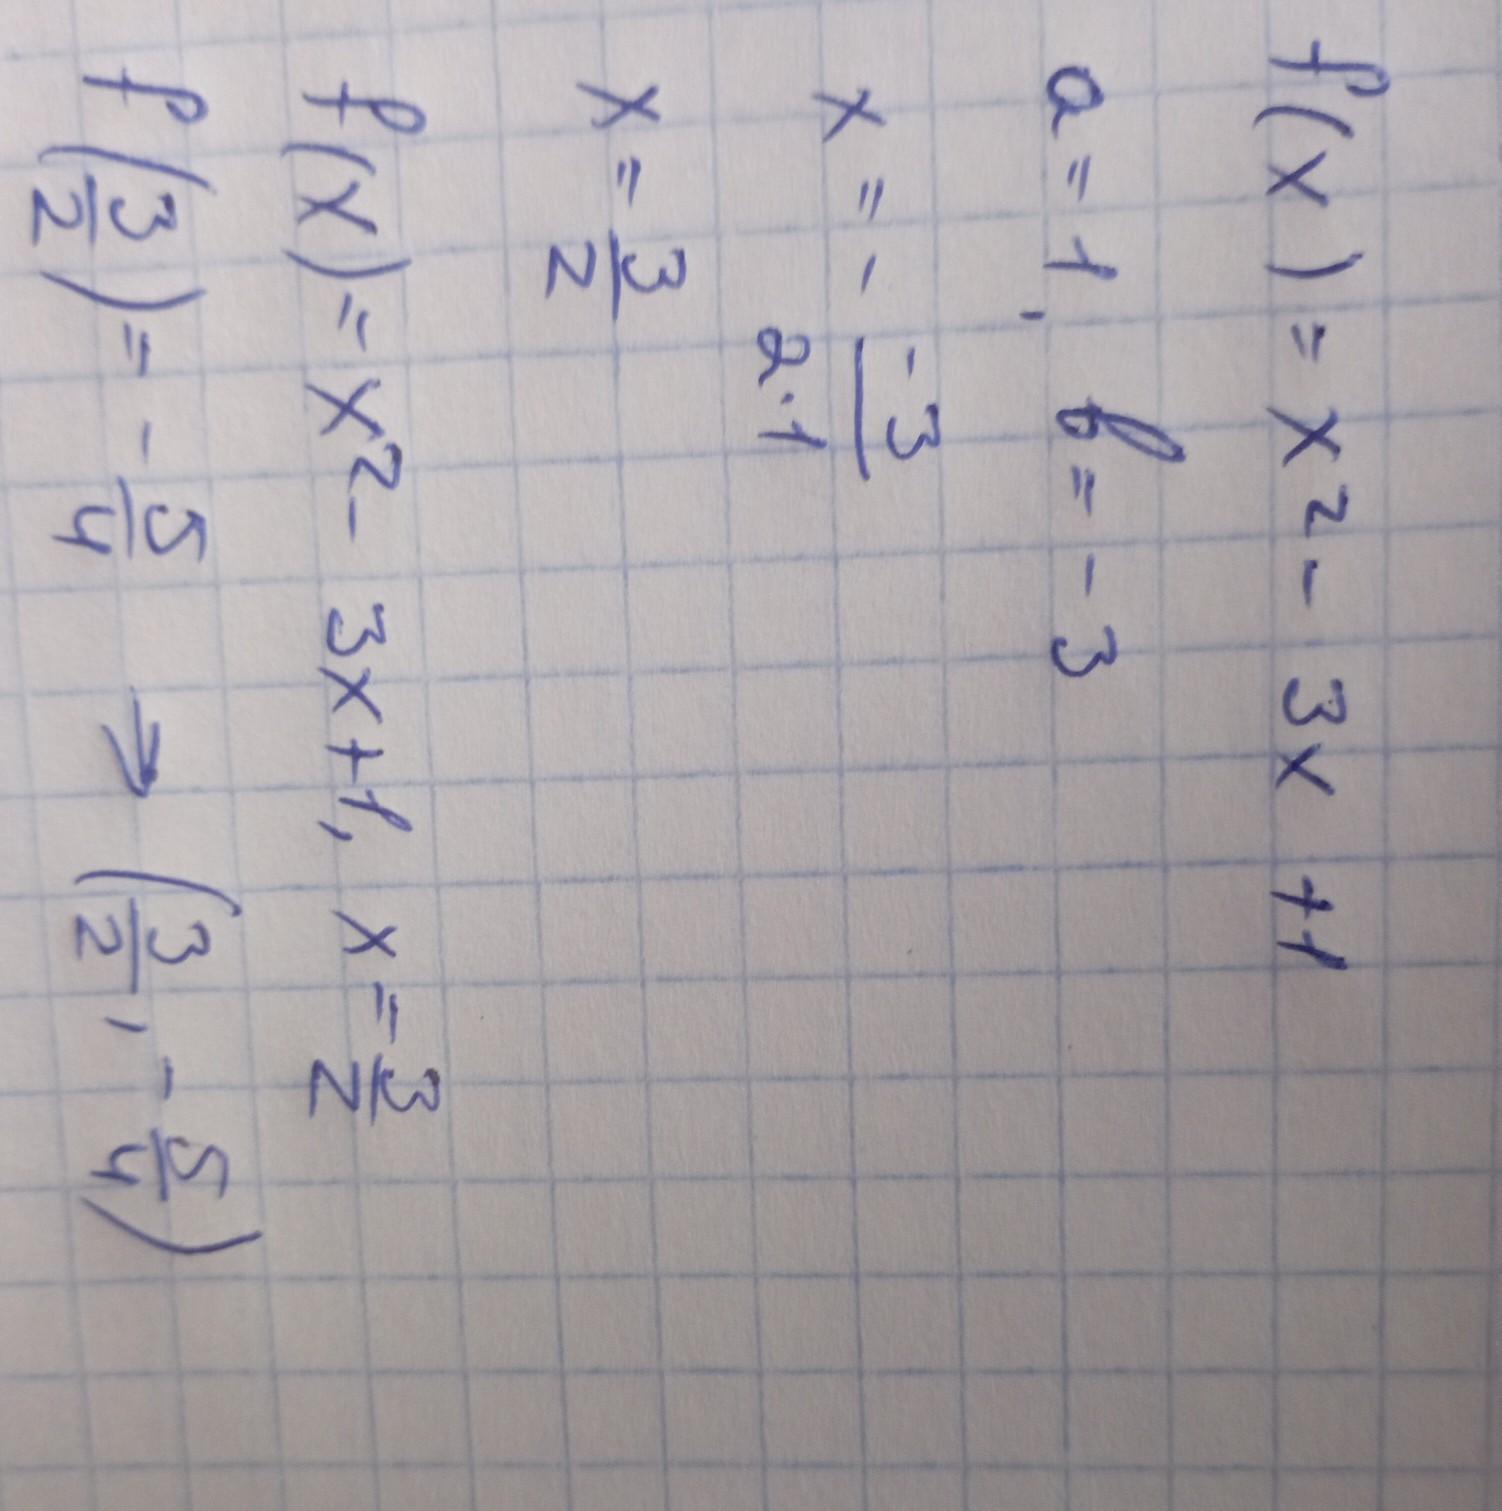 f(x) = x² - 3x + 1
a = 1, b = - 3
x = - \frac{-3}{2·1}
x = \frac{3}{2}
f(x) = x² - 3x + 1, x = \frac{3}{2}
f(\frac{3}{2}) = - \frac{5}{4} → (\frac{3}{2}, - \frac{5}{4})